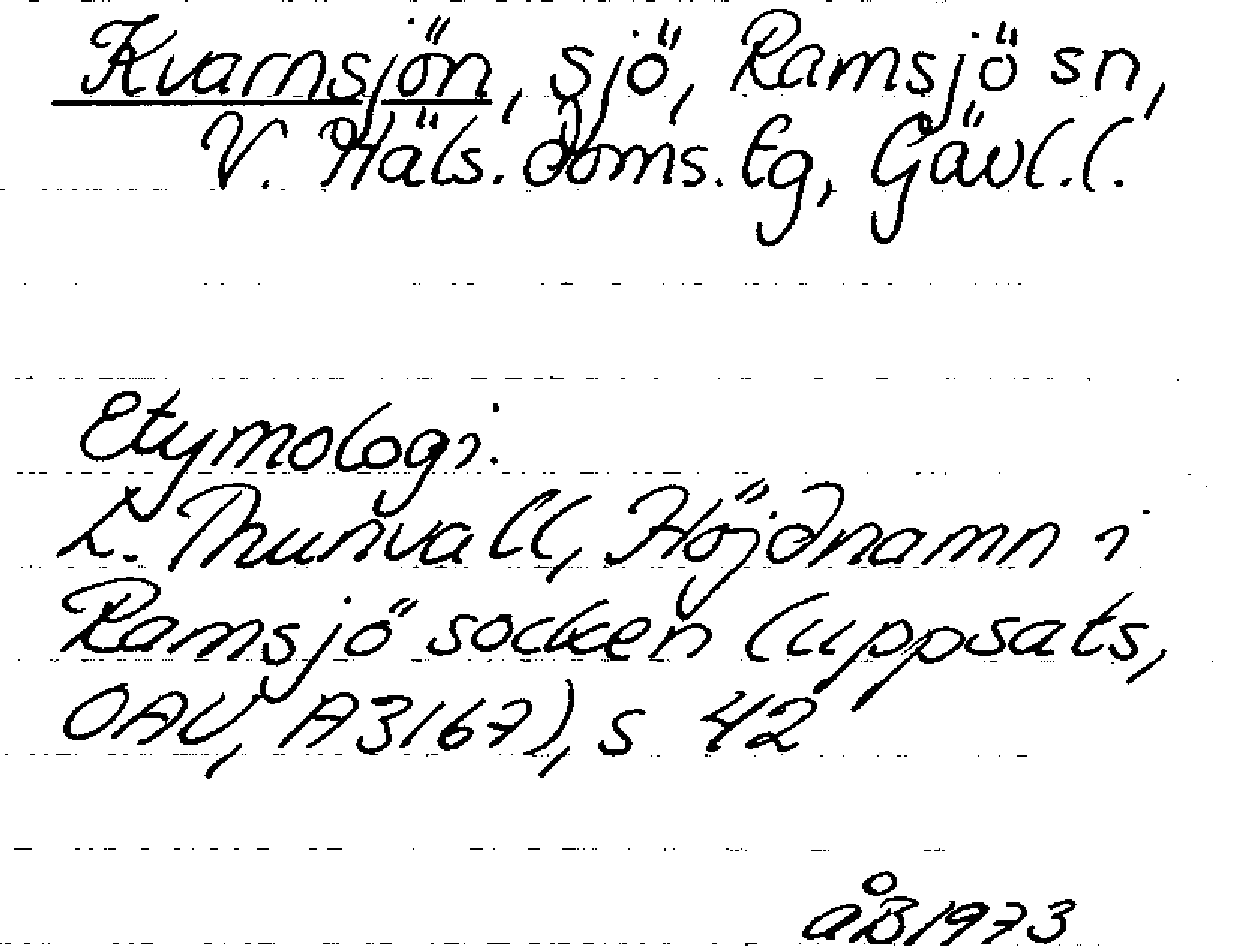 Kvarnsjön, sjö, Ramsjö sn,
V. Häls. doms. tg, Gävl. l.
Etymologi.
L. Thunvall, Höjdnamn i
Ramsjö socken (uppsats,
OAU, A3167), s 42
åB 1973